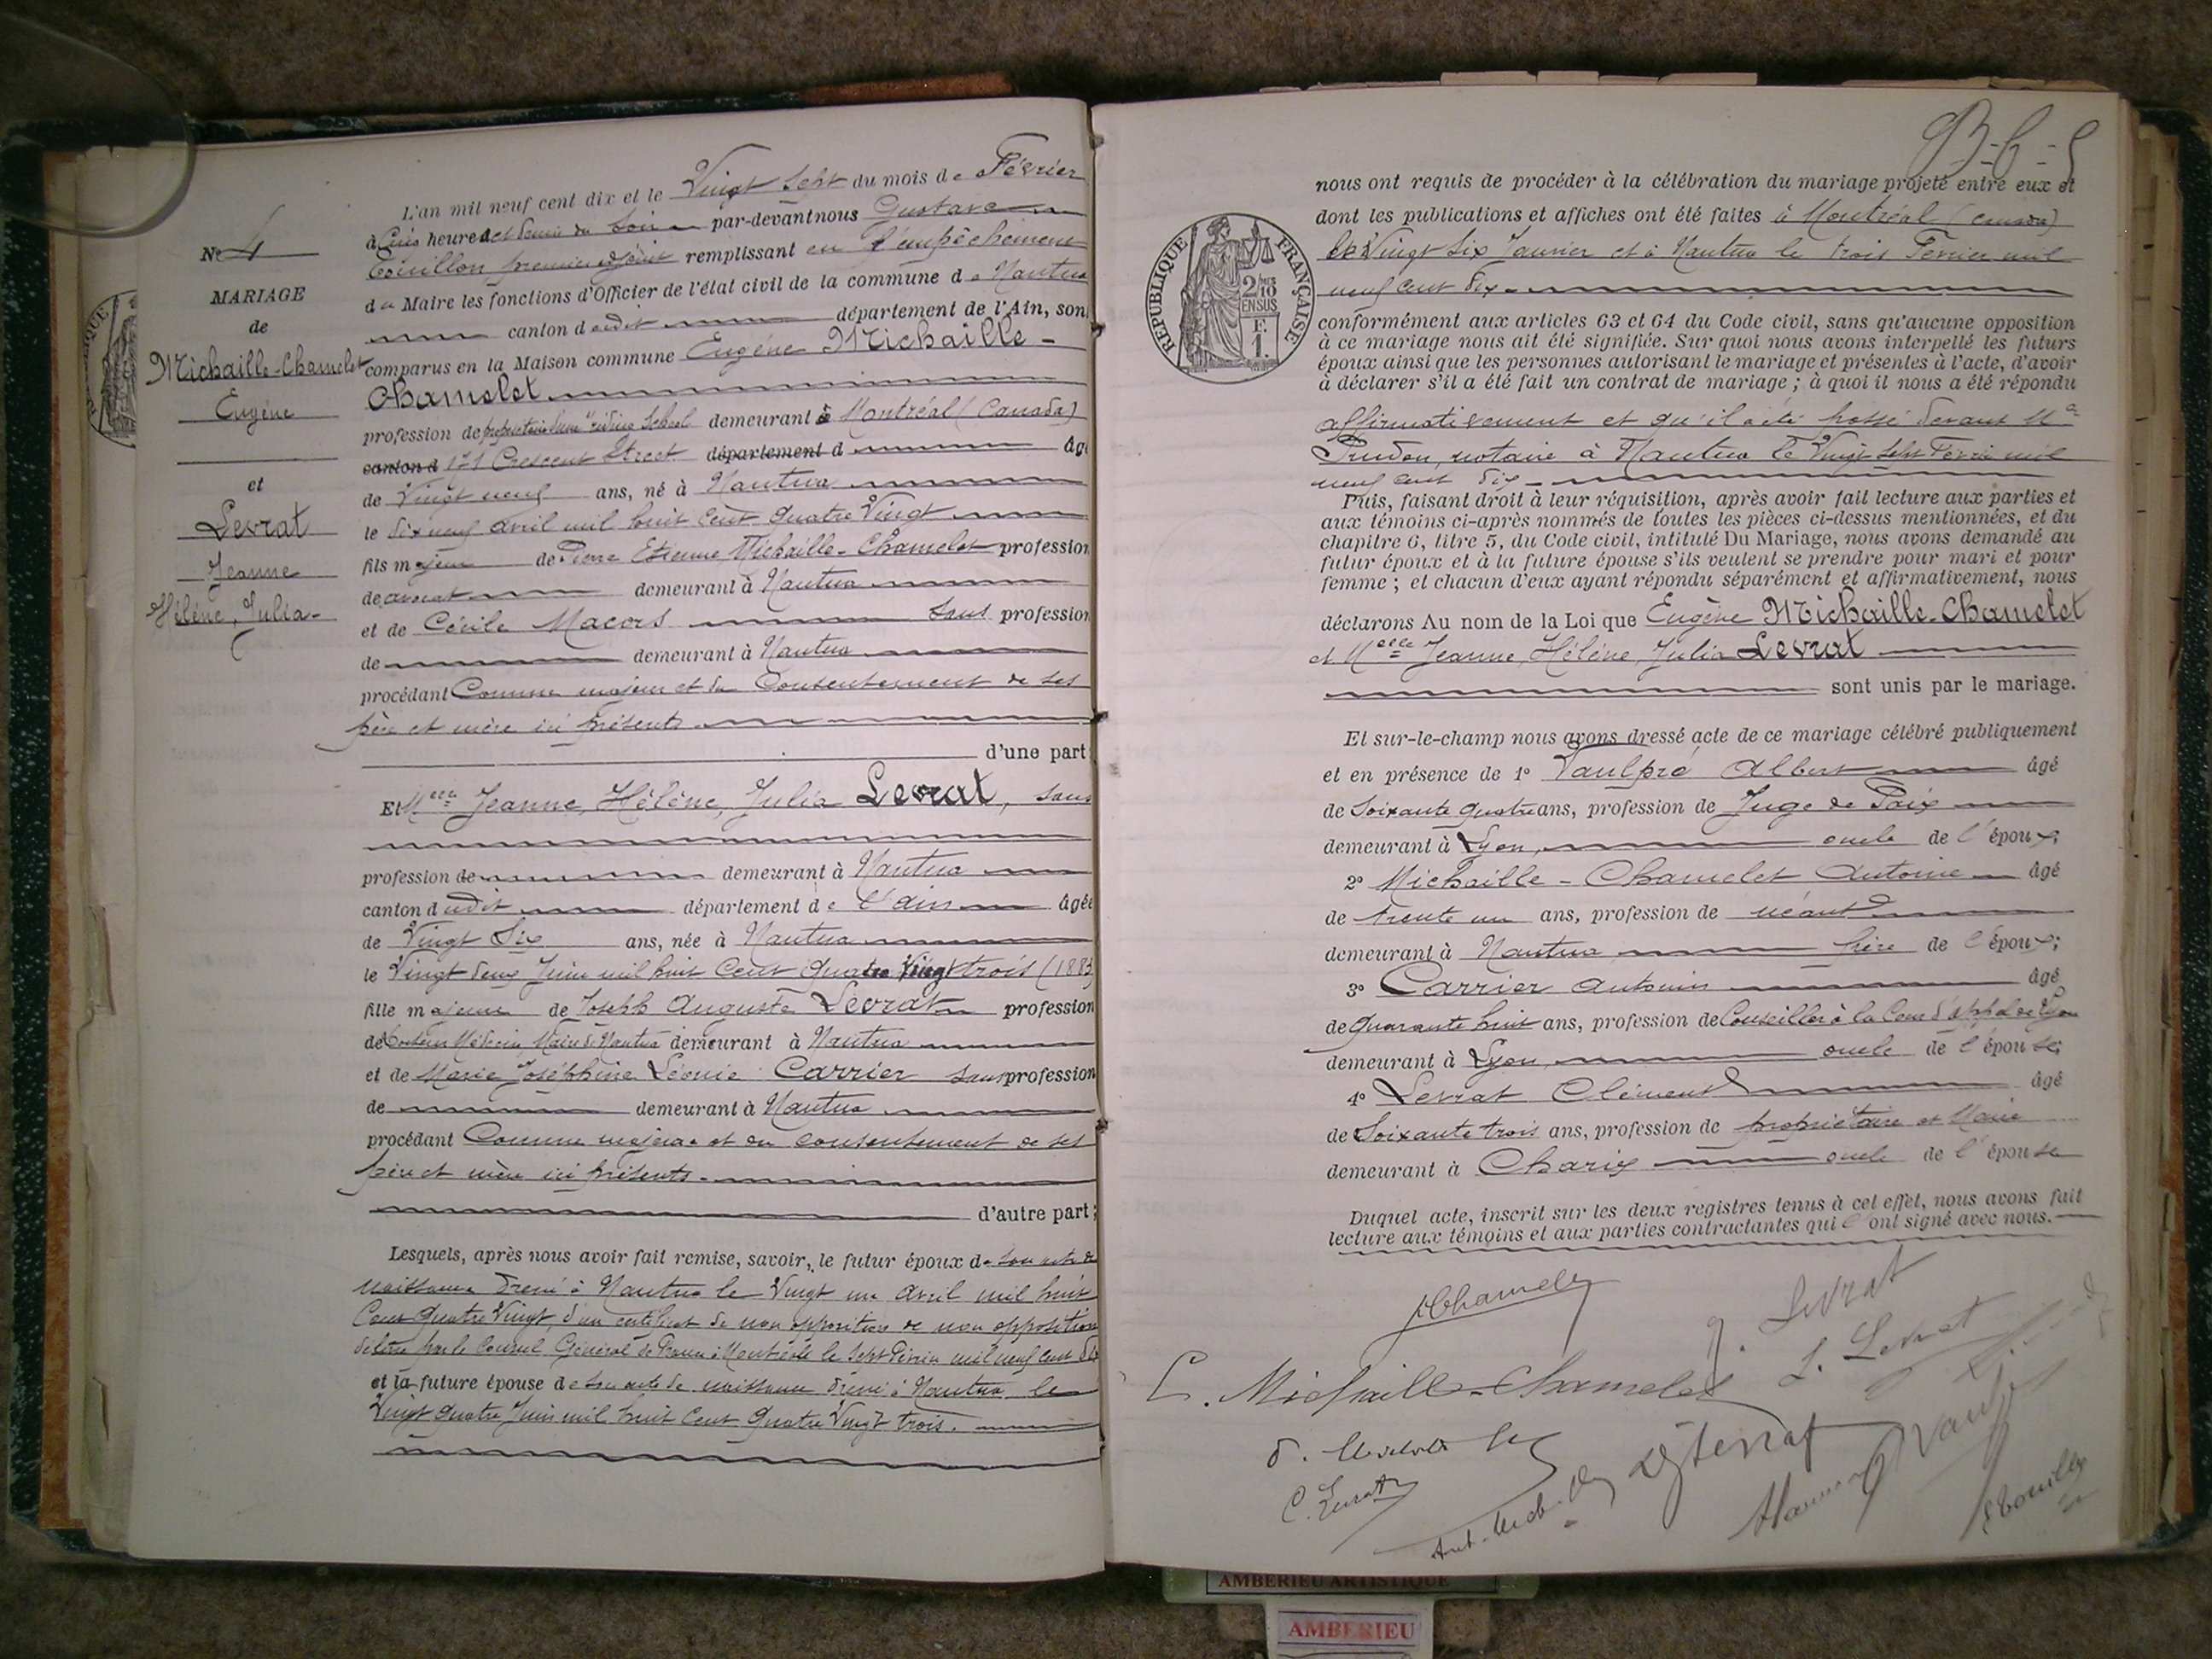 L'an mil neuf cent dix et le Vingt Sept du mois de Février
à Cinq heures et demie du Soir par-devant nous Gustave
Touillon premier adjoint remplissant en l'empêchement
du Maire les fonctions d'Officier de l'état civil de la commune de Nantua
canton dudit département de l'Ain, sont
comparus en la Maison commune Eugène Michaille-
Chamelet
profession de propriétaire d'une "riding School demeurant à Montréal (Canada)
canton d 171 Crescent Street département d âgé
de Vingt neuf ans, né à Nantua
le dix neuf avril mil huit cent quatre Vingt
fils majeur de Pierre Etienne Michaille-Chamelet profession
de avocat demeurant à Nantua
et de Cécile Macors Sans profession
de demeurant à Nantua
procédant Comme majeur et du Consentement de ses
père et mère ici présents
d'une part;
Et Melle Jeanne, Hélène, Julia Levrat, sans
profession de demeurant à Nantua
canton dudit département de l'Ain âgée
de Vingt Six ans, née à Nantua
le Vingt deux Juin mil huit Cent Quatre Vingt trois (1883)
fille majeure de Joseph Auguste Levrat profession
de Docteur Médecin, Maire de Nantua demeurant à Nantua
et de Marie Joséphine Léonie Carrier sans profession
de demeurant à Nantua
procédant Comme majeure et du consentement de ses
père et mère ici présents.
d'autre part;
Lesquels, après nous avoir fait remise, savoir, le futur époux de son acte de
naissance dressé à Nantua le Vingt un Avril mil huit
Cent quatre Vingt, d'un certificat de non opposition de non opposition
délivré par le Consul Général de France à Montréal le Sept Février mil neuf cent dix
et la future épouse de son acte de naissance dressé à Nantua le
Vingt quatre Juin mil huit Cent Quatre Vingt trois.
No 4
MARIAGE
de
Michaille-Chamelet
Eugène
et
Levrat
Jeanne
Hélène, Julia-
nous ont requis de procéder à la célébration du mariage projeté entre eux et
dont les publications et affiches ont été faites à Montréal (Canada)
le Vingt Six Janvier et à Nantua le trois Février mil
neuf cent dix
conformément aux articles 63 et 64 du Code civil, sans qu'aucune opposition
à ce mariage nous ait été signifiée. Sur quoi nous avons interpellé les futurs
époux ainsi que les personnes autorisant le mariage et présentes à l'acte, d'avoir
à déclarer s'il a été fait un contrat de mariage; à quoi il nous a été répondu
affirmativement et qu'il a été passé devant Me
Prudon, notaire à Nantua le Vingt Sept Février mil
neuf cent dix
Puis, faisant droit à leur réquisition, après avoir fait lecture aux parties et
aux témoins ci-après nommés de toutes les pièces ci-dessus mentionnées, et du
chapitre 6, titre 5, du Code civil, intitulé Du Mariage, nous avons demandé au
futur époux et à la future épouse s'ils veulent se prendre pour mari et pour
femme; et chacun d'eux ayant répondu séparément et affirmativement, nous
déclarons Au nom de la Loi que Eugène Michaille-Chamelet
et Melle Jeanne, Hélène, Julia Levrat
sont unis par le mariage.
Et sur-le-champ nous avons dressé acte de ce mariage célébré publiquement
et en présence de 1o Vaulpré Albert âgé
de Soixante quatre ans, profession de Juge de Paix
demeurant à Lyon, oncle de l'époux;
2o Michaille-Chamelet Antoine âgé
de trente un ans, profession de néant
demeurant à Nantua frère de l'époux;
3o Carrier Antonin âgé
de Quarante huit ans, profession de Conseiller à la Cour d'appel de Lyon
demeurant à Lyon, oncle de l'épouse;
4o Levrat Clément âgé
de Soixante trois ans, profession de propriétaire et Maire
demeurant à Charix oncle de l'épouse
Duquel acte, inscrit sur les deux registres tenus à cet effet, nous avons fait
lecture aux témoins et aux parties contractantes qui l'ont signé avec nous.
REPUBLIQUE FRANÇAISE
2/10
EN SUS
F.
1.
Chamelet
J. Levrat
E. Michaille-Chamelet
L. Levrat
C. Levrat
Touillon
AMBERIEU ARTISTIQUE
AMBERIEU